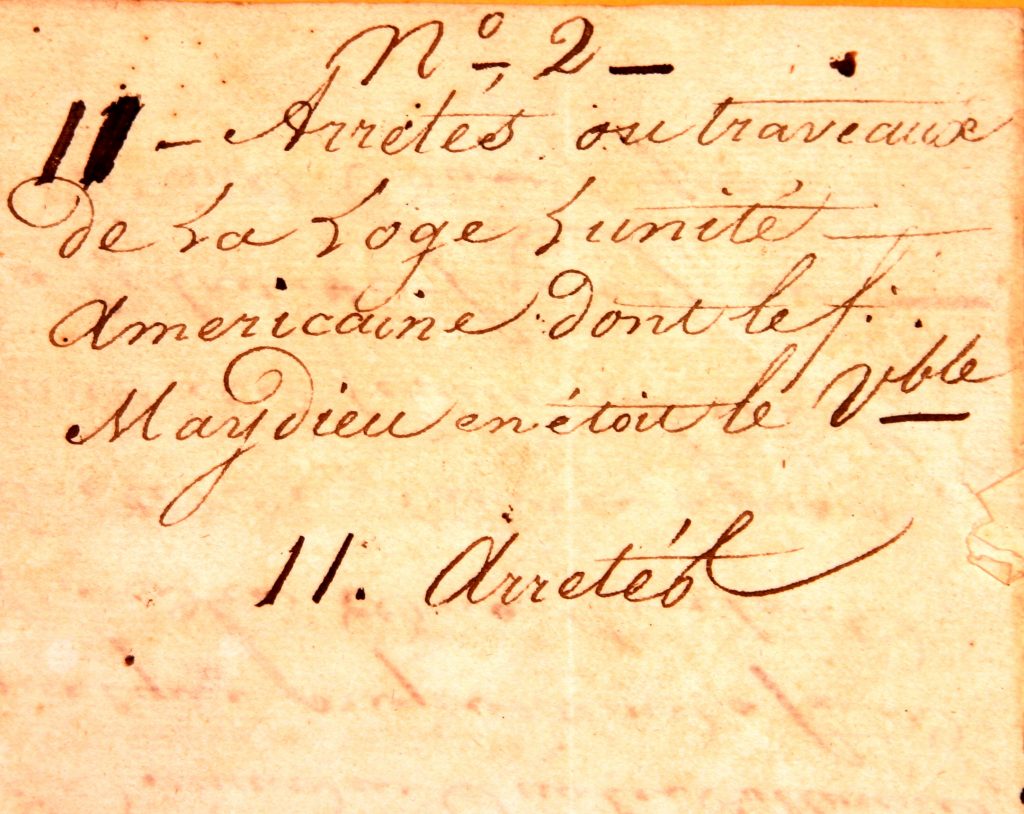 Nº 2 —
11 - Arretés ou traveaux
de La Loge Lunité —
Americaine dont le f∴
Maydieu en étoit le Vble
11. Arretés